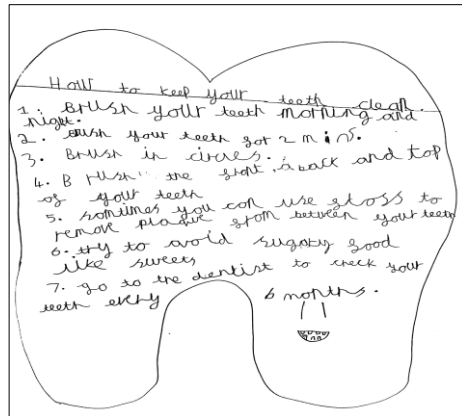 How to keep your teeth clean.
1. Brush your teeth morning and
night.
2. Brush your teeth for 2 mins.
3. Brush in circles.
4. Brush the front, a back and top
of your teeth
5. somtimes you can use floss to
remove plaque from between your teeth
6. try to avoid sugary food
like sweets
7. go to the dentist to check your
teeth every 6 months.